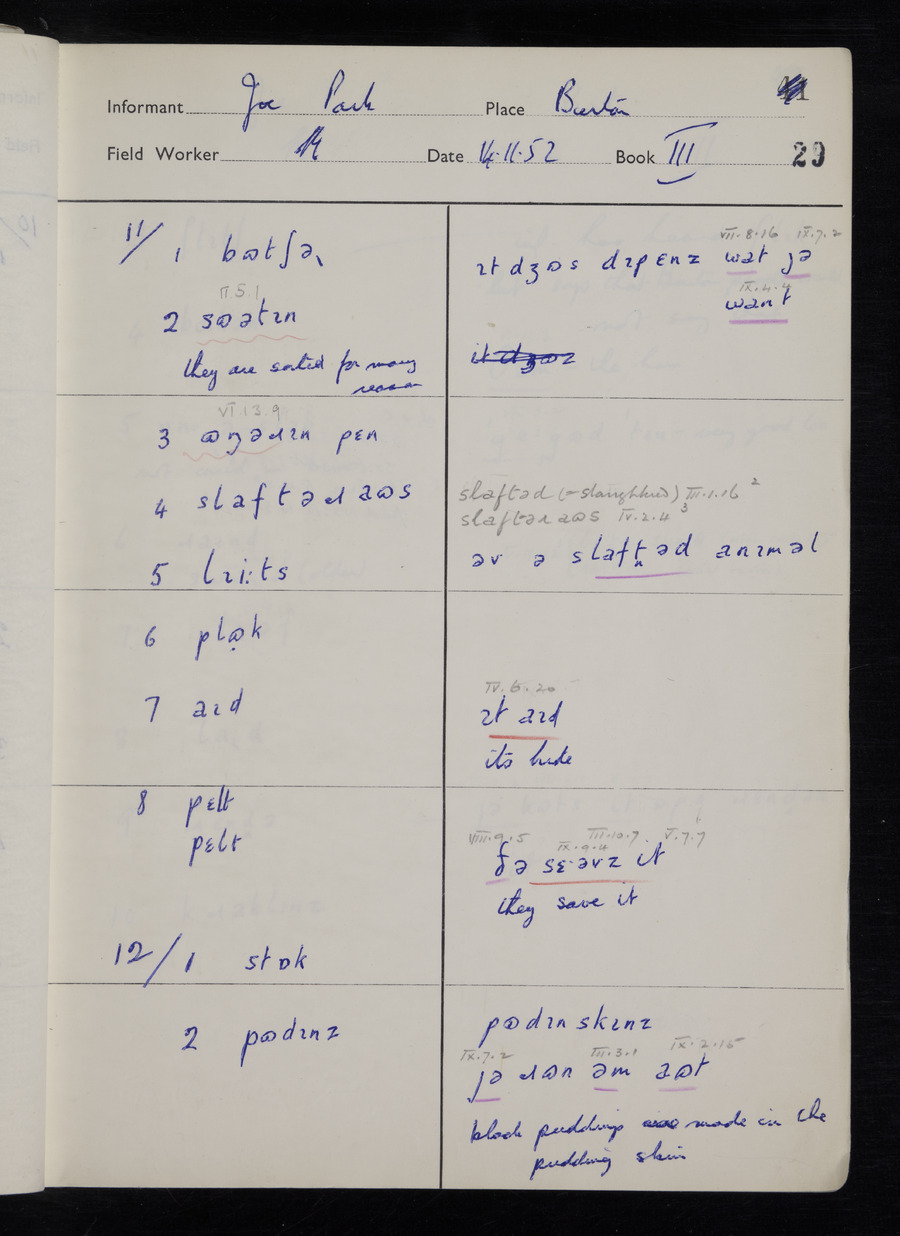 Informant Joe Park Place Burton
Field Worker Date 14.11.52 Book III 29
11/ 1 bɷtʃə
ɪt dʒɷs dɪpɛnz wat jə
VII.8.16 IX.7.2
want
IX.4.4
II.5.1
2 sɷətɪn
they are sorted for many reason
VI.13.9
3 pɛn
4 slaftəɹ aɷs
slaftəd (= slaughtered) III.1.16 2
slaftəɹ aɷs IV.2.4 3
5 lɪi:ts
əv ə slaftəd anɪməl
6 plɷk
7 aɪd
IV.6.20
ɪt aɪd
its hide
8 pɛlt
pɛlt
VIII.9.5 III.10.7 V.7.7
IX.9.4
ðə sɛ·əvz ɪt
they save it
12/ 1 stɒk
2 pɷdɪnz
pɷdɪn skɪnz
IX.7.2 III.3.1 IX.2.15
jə ɹɷn əm aɷt
black puddings made in the
pudding skin